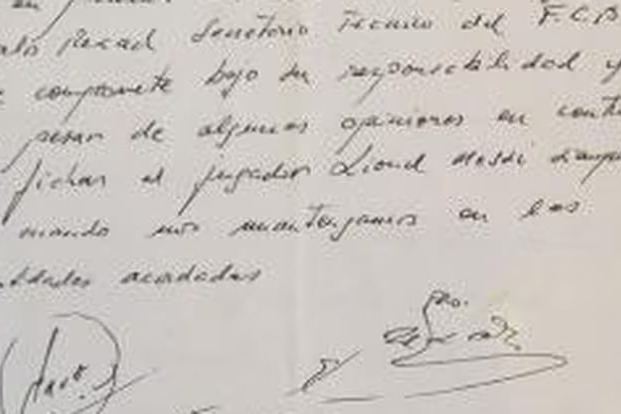 en
Recad Secretario Tecnico del F.C.B
compromete bajo su responsabilidad y
pesar de algunas opiniones en cont
fichar al jugador Lionel Messi
cuando nos mantengamos en las
tidades acordadas